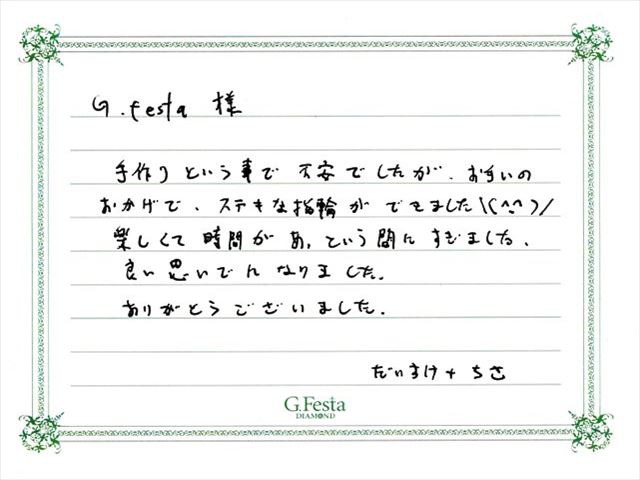 G.festa 様
手作りという事で不安でしたが、お手伝いの
おかげで、ステキな指輪ができました\(^^)/
楽しくて時間があっという間にすぎました、
良い思いでになりました。
ありがとうございました。
だいすけ + ちさ
G.Festa
DIAMOND